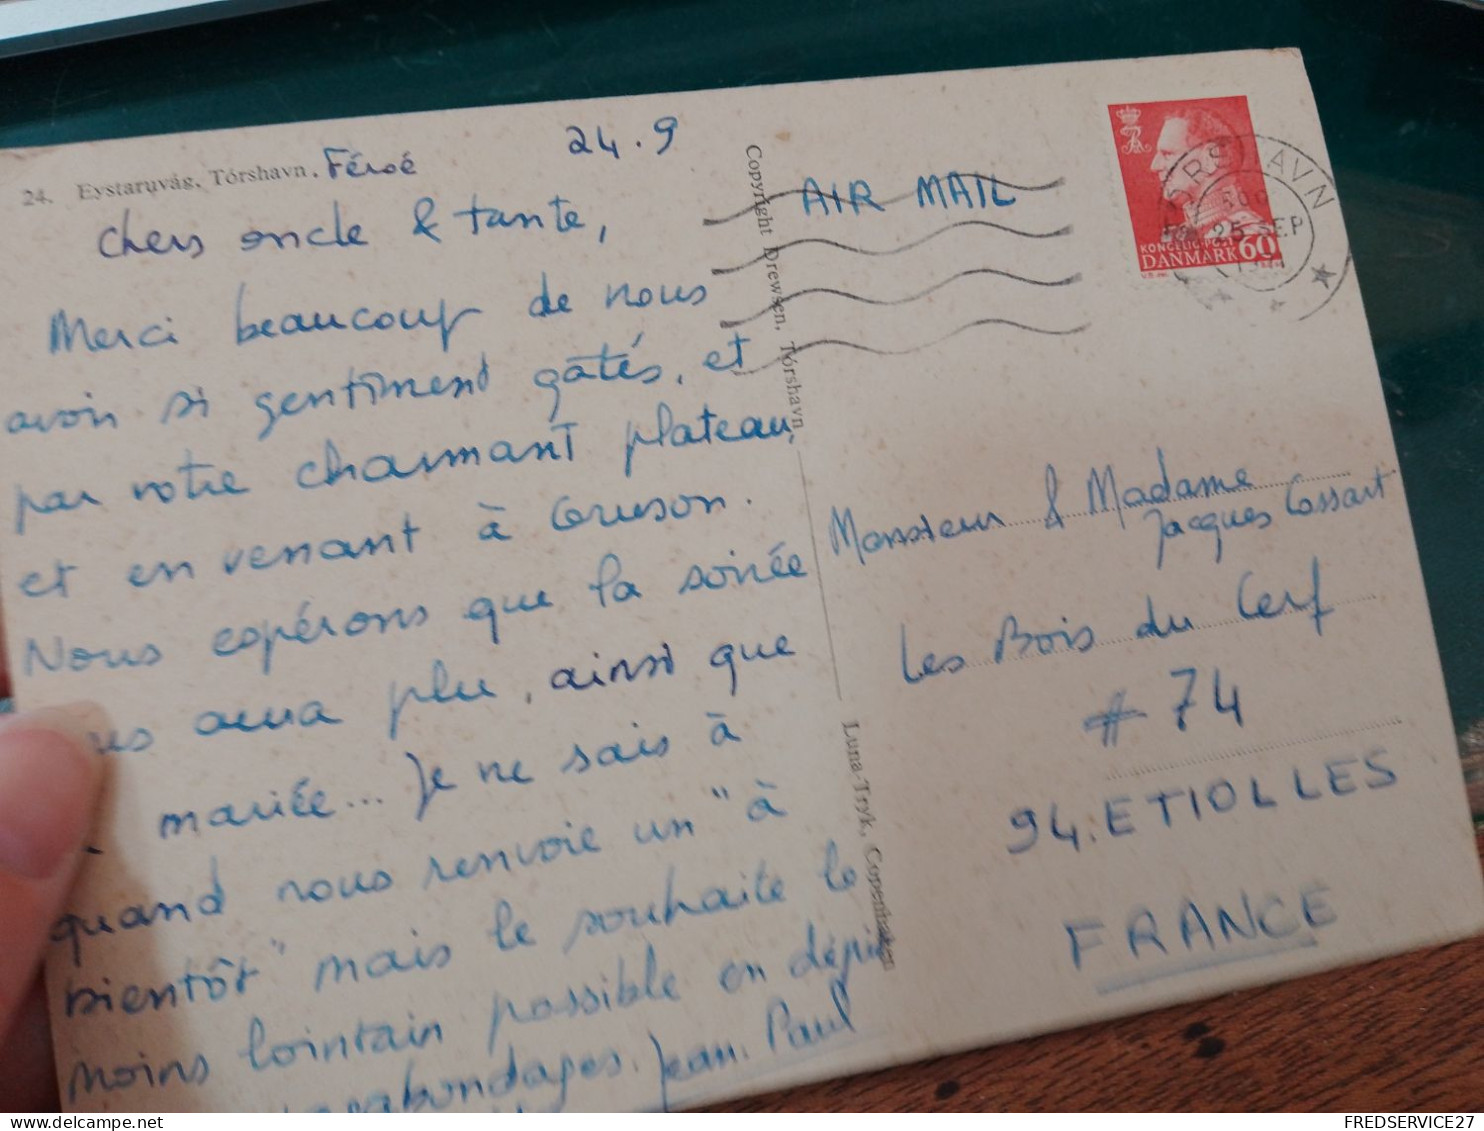 24. Eystaruvág, Tórshavn. Féroé
24.9
chers oncle & tante,
Merci beaucoup de nous
avoir si gentiment gâtés, et
par votre charmant plateau,
et en venant à
Nous espérons que la soirée
aura plu, ainsi que
mariée... Je ne sais à
quand nous renvoie un "à
bientôt" mais le souhaite le
moins lointain possible en dépit
vagabondages. Jean-Paul
Copyright Drewsen, Tórshavn.
Luna-Tryk, Copenhagen
AIR MAIL
KONGELIG POST
DANMARK 60
25 SEP
Monsieur & Madame
Jacques Cossart
Les Bois du Cerf
# 74
94. ETIOLLES
FRANCE
FREDSERVICE27